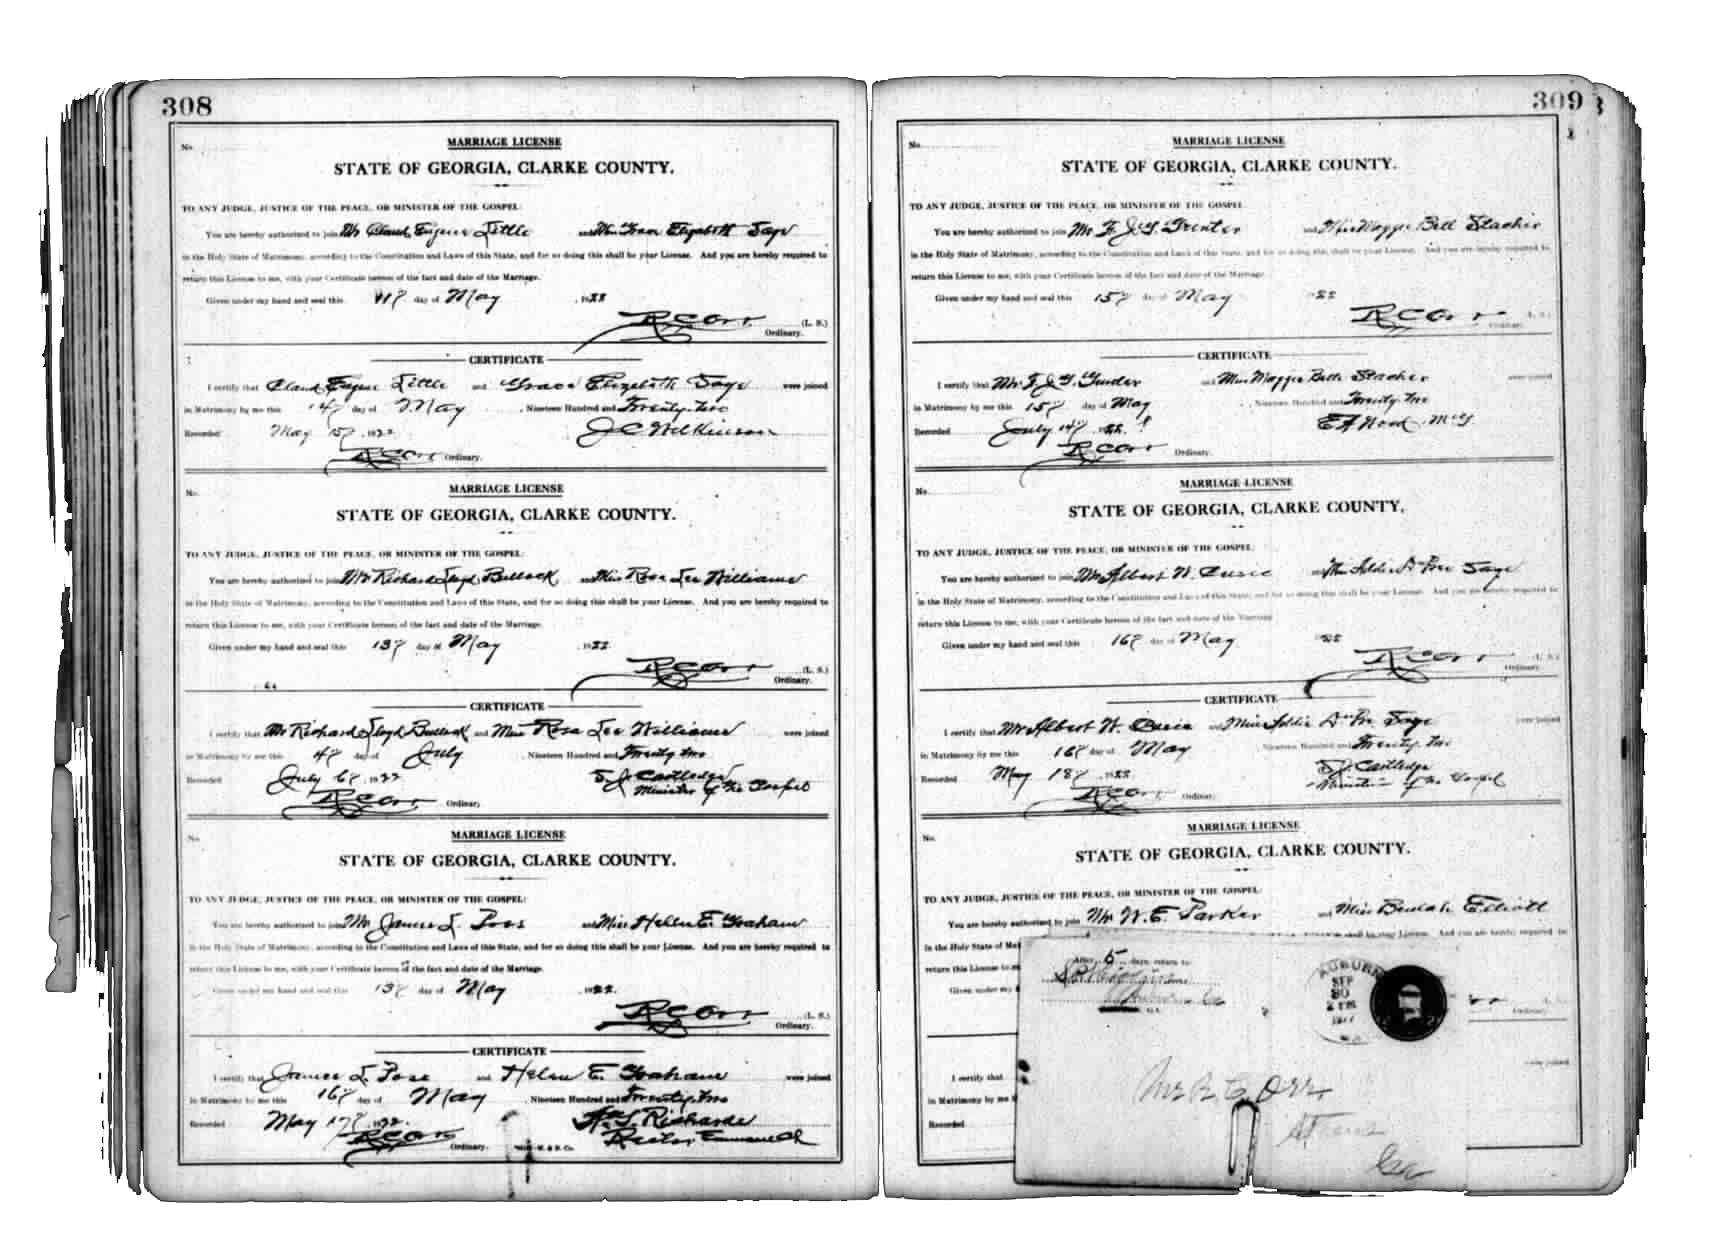 308
No.
MARRIAGE LICENSE
STATE OF GEORGIA, CLARKE COUNTY.
TO ANY JUDGE, JUSTICE OF THE PEACE, OR MINISTER OF THE GOSPEL:
You are hereby authorized to join Mr Claud Eugene Little and Miss Grace Elizabeth Saye
in the Holy State of Matrimony, according to the Constitution and Laws of this State, and for so doing this shall be your License. And you are hereby required to
return this License to me, with your Certificate hereon of the fact and date of the Marriage.
Given under my hand and seal this day of May , 1922
R C Orr (L. S.)
Ordinary.
CERTIFICATE
I certify that Claud Eugene Little and Grace Elizabeth Saye were joined
in Matrimony by me this 14 day of May , Nineteen Hundred and Twenty-two
Recorded May 15 , 1922 J C Wilkinson
R C Orr Ordinary.
No.
MARRIAGE LICENSE
STATE OF GEORGIA, CLARKE COUNTY.
TO ANY JUDGE, JUSTICE OF THE PEACE, OR MINISTER OF THE GOSPEL:
You are hereby authorized to join Mr Richard Lloyd Bullock and Miss Rosa Lee Williams
in the Holy State of Matrimony, according to the Constitution and Laws of this State, and for so doing this shall be your License. And you are hereby required to
return this License to me, with your Certificate hereon of the fact and date of the Marriage.
Given under my hand and seal this 13 day of May , 1922
R C Orr (L. S.)
Ordinary.
CERTIFICATE
I certify that Mr Richard Lloyd Bullock and Miss Rosa Lee Williams were joined
in Matrimony by me this 4 day of July , Nineteen Hundred and Twenty two
Recorded July 6 , 1922 S J Cartledge
Minister of the Gospel
R C Orr Ordinary
No.
MARRIAGE LICENSE
STATE OF GEORGIA, CLARKE COUNTY.
TO ANY JUDGE, JUSTICE OF THE PEACE, OR MINISTER OF THE GOSPEL:
You are hereby authorized to join Mr James L. Poss and Miss Helen E. Graham
in the Holy State of Matrimony, according to the Constitution and Laws of this State, and for so doing this shall be your License. And you are hereby required to
return this License to me, with your Certificate hereon of the fact and date of the Marriage.
Given under my hand and seal this 13 day of May 1922
R C Orr (L. S.)
Ordinary.
CERTIFICATE
I certify that James L. Poss and Helen E. Graham were joined
in Matrimony by me this 16 day of May , Nineteen Hundred and Twenty-two
Recorded May 17 , 1922. Richards
Rector, Emmanuel Ch
R C Orr Ordinary.
309
No.
MARRIAGE LICENSE
STATE OF GEORGIA, CLARKE COUNTY.
TO ANY JUDGE, JUSTICE OF THE PEACE, OR MINISTER OF THE GOSPEL:
You are hereby authorized to join Mr F. J. and Miss Maggie Bell
in the Holy State of Matrimony, according to the Constitution and Laws of this State, and for so doing this shall be your License. And you are hereby required to
return this License to me, with your Certificate hereon of the fact and date of the Marriage.
Given under my hand and seal this 15 day of May 1922
R C Orr (L. S.)
Ordinary.
CERTIFICATE
I certify that Mr. F. J. and Miss Maggie Belle were joined
in Matrimony by me this 15 day of May , Nineteen Hundred and Twenty two
Recorded July 14 , 1922. E F Wood, M G
R C Orr Ordinary.
No.
MARRIAGE LICENSE
STATE OF GEORGIA, CLARKE COUNTY.
TO ANY JUDGE, JUSTICE OF THE PEACE, OR MINISTER OF THE GOSPEL:
You are hereby authorized to join Mr Albert W. and Miss Addie Saye
in the Holy State of Matrimony, according to the Constitution and Laws of this State, and for so doing this shall be your License. And you are hereby required to
return this License to me, with your Certificate hereon of the fact and date of the Marriage
Given under my hand and seal this 16 day of May 1922
R C Orr (L. S.)
Ordinary.
CERTIFICATE
I certify that Mr Albert W. and Miss Addie Saye were joined
in Matrimony by me this 16 day of May Nineteen Hundred and Twenty two
Recorded May 18 , 1922 S J Cartledge
Minister of the Gospel
R C Orr Ordinary
No.
MARRIAGE LICENSE
STATE OF GEORGIA, CLARKE COUNTY.
TO ANY JUDGE, JUSTICE OF THE PEACE, OR MINISTER OF THE GOSPEL:
You are hereby authorized to join Mr W. E. Parker and Miss Beulah Elliott
in the Holy State of Mat shall be your License. And you are hereby required to
return this License to
Given under my
Ordinary.
were joined
I certify that
in Matrimony by me
Recorded
After 5 days, return to
GA.
AUBURN
SEP
30
Mr R. C. Orr,
Athens
Ga